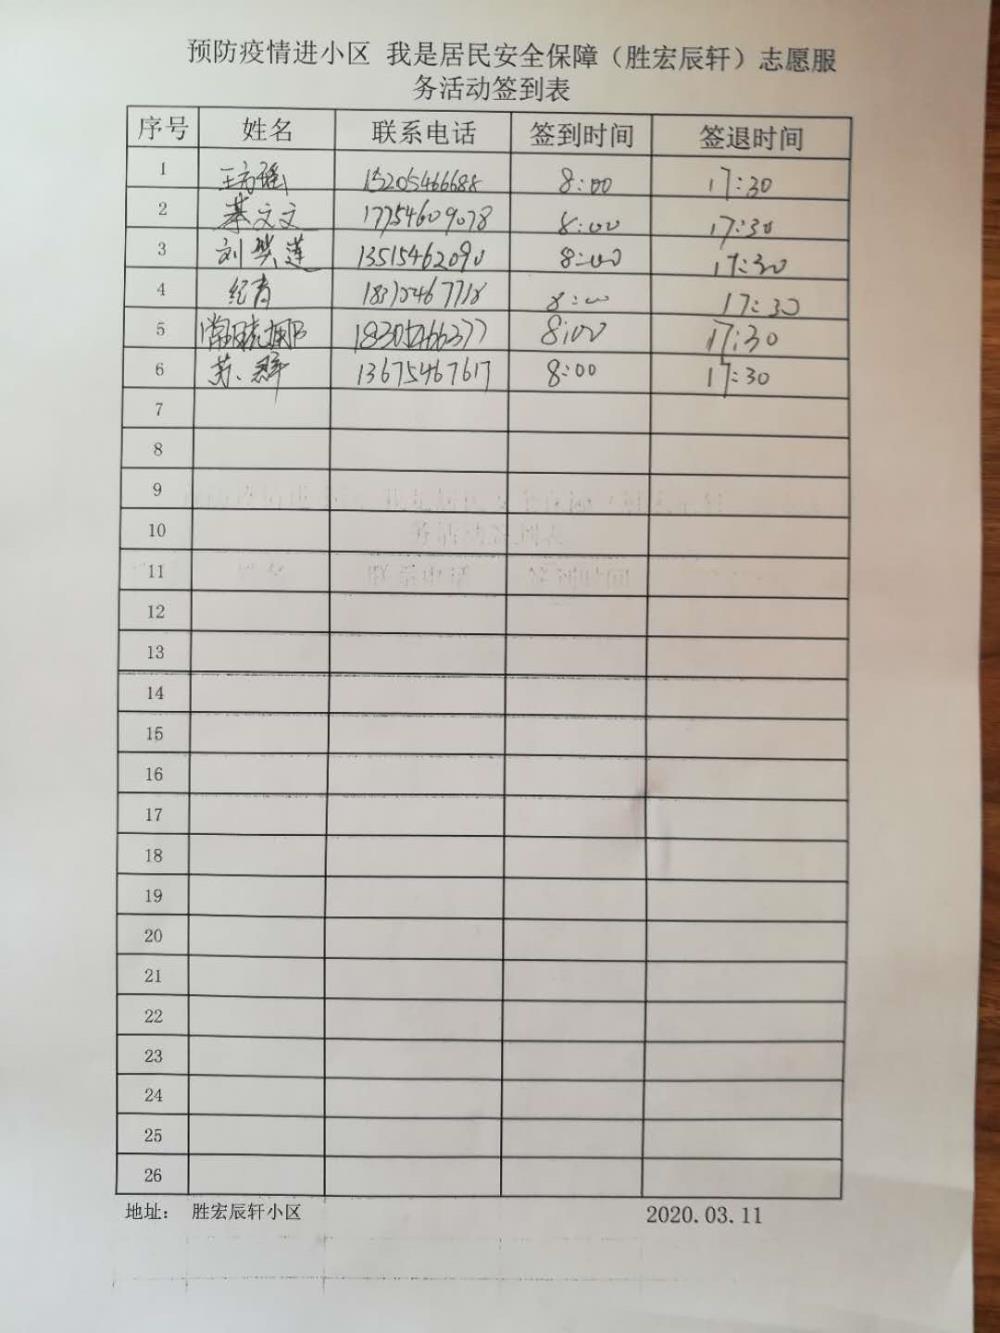 预防疫情进小区 我是居民安全保障（胜宏辰轩）志愿服
务活动签到表
序号 姓名 联系电话 签到时间 签退时间
1 15205466688 8:00 17:30
2 綦文文 17754609078 8:00 17:30
3 刘 莲 13515462090 8:00 17:30
4 纪青 8:00 17:30
5 18305466377 8:00 17:30
6 苏群 13675467617 8:00 17:30
7
8
9
10
11
12
13
14
15
16
17
18
19
20
21
22
23
24
25
26
地址： 胜宏辰轩小区 2020.03.11